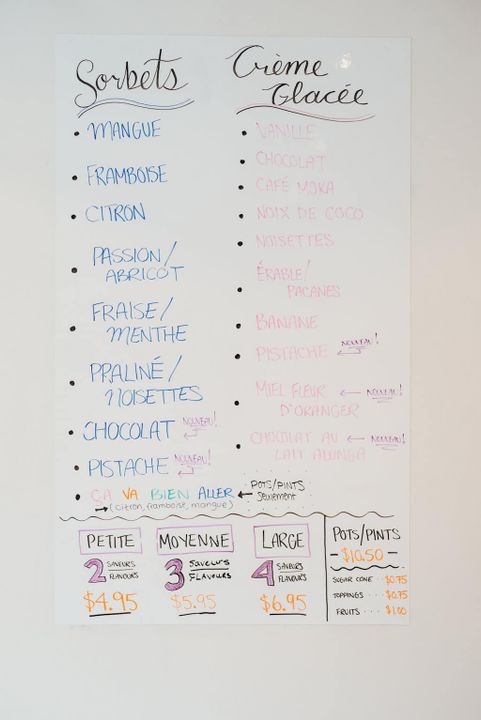 Sorbets
• MANGUE
• FRAMBOISE
• CITRON
• PASSION/
ABRICOT
• FRAISE/
MENTHE
• PRALINÉ/
NOISETTES
• CHOCOLAT NOUVEAU!
• PISTACHE NOUVEAU!
• ÇA VA BIEN ALLER ← POTS/PINTS
seulement
→ (citron, framboise, mangue)
Crème
Glacée
• VANILLE
• CHOCOLAT
• CAFÉ MOKA
• NOIX DE COCO
• NOISETTES
• ÉRABLE/
PACANES
• BANANE
• PISTACHE NOUVEAU!
• MIEL FLEUR ← NOUVEAU!
D'ORANGER
• CHOCOLAT AU ← NOUVEAU!
LAIT ALUNGA
PETITE
2 SAVEURS
FLAVOURS
$4.95
MOYENNE
3 SAVEURS
FLAVOURS
$5.95
LARGE
4 SAVEURS
FLAVOURS
$6.95
POTS/PINTS
- $10.50 -
SUGAR CONE ·· $0.75
TOPPINGS ···· $0.75
FRUITS ···· $1.00